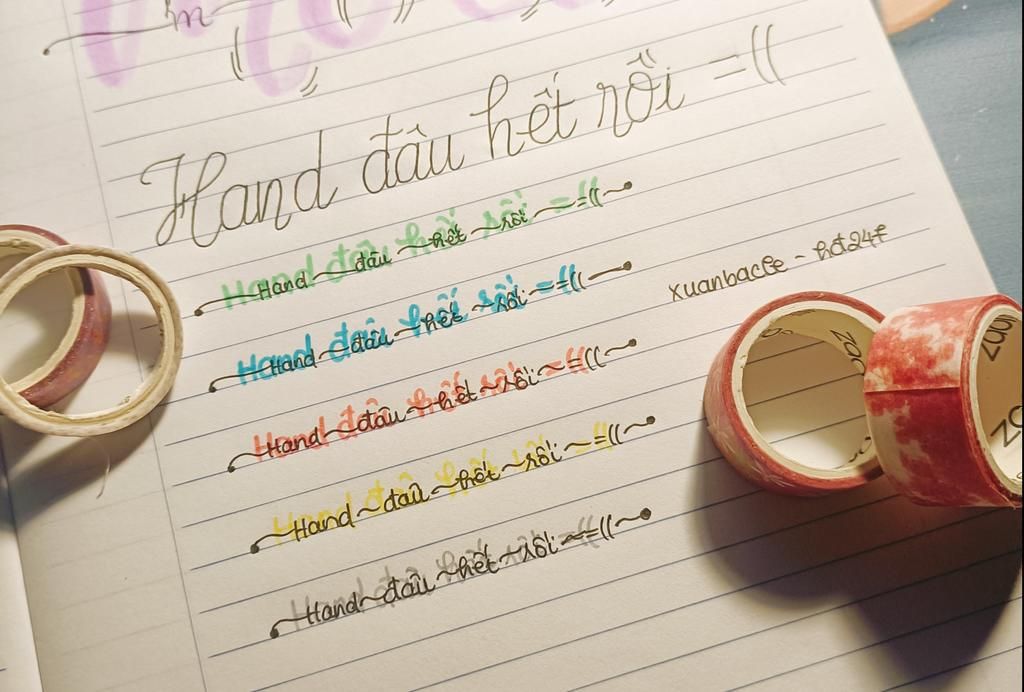 Hand đâu hết rồi =((
Hand ~ đâu ~ hết ~ rồi ~ =((~
Hand ~ đâu ~ hết ~ rồi ~ =((~
xuanbacfe - hđ24f
Hand ~ đâu ~ hết ~ rồi ~ =((~
Hand ~ đâu ~ hết ~ rồi ~ =((~
Hand ~ đâu ~ hết ~ rồi ~ =((~